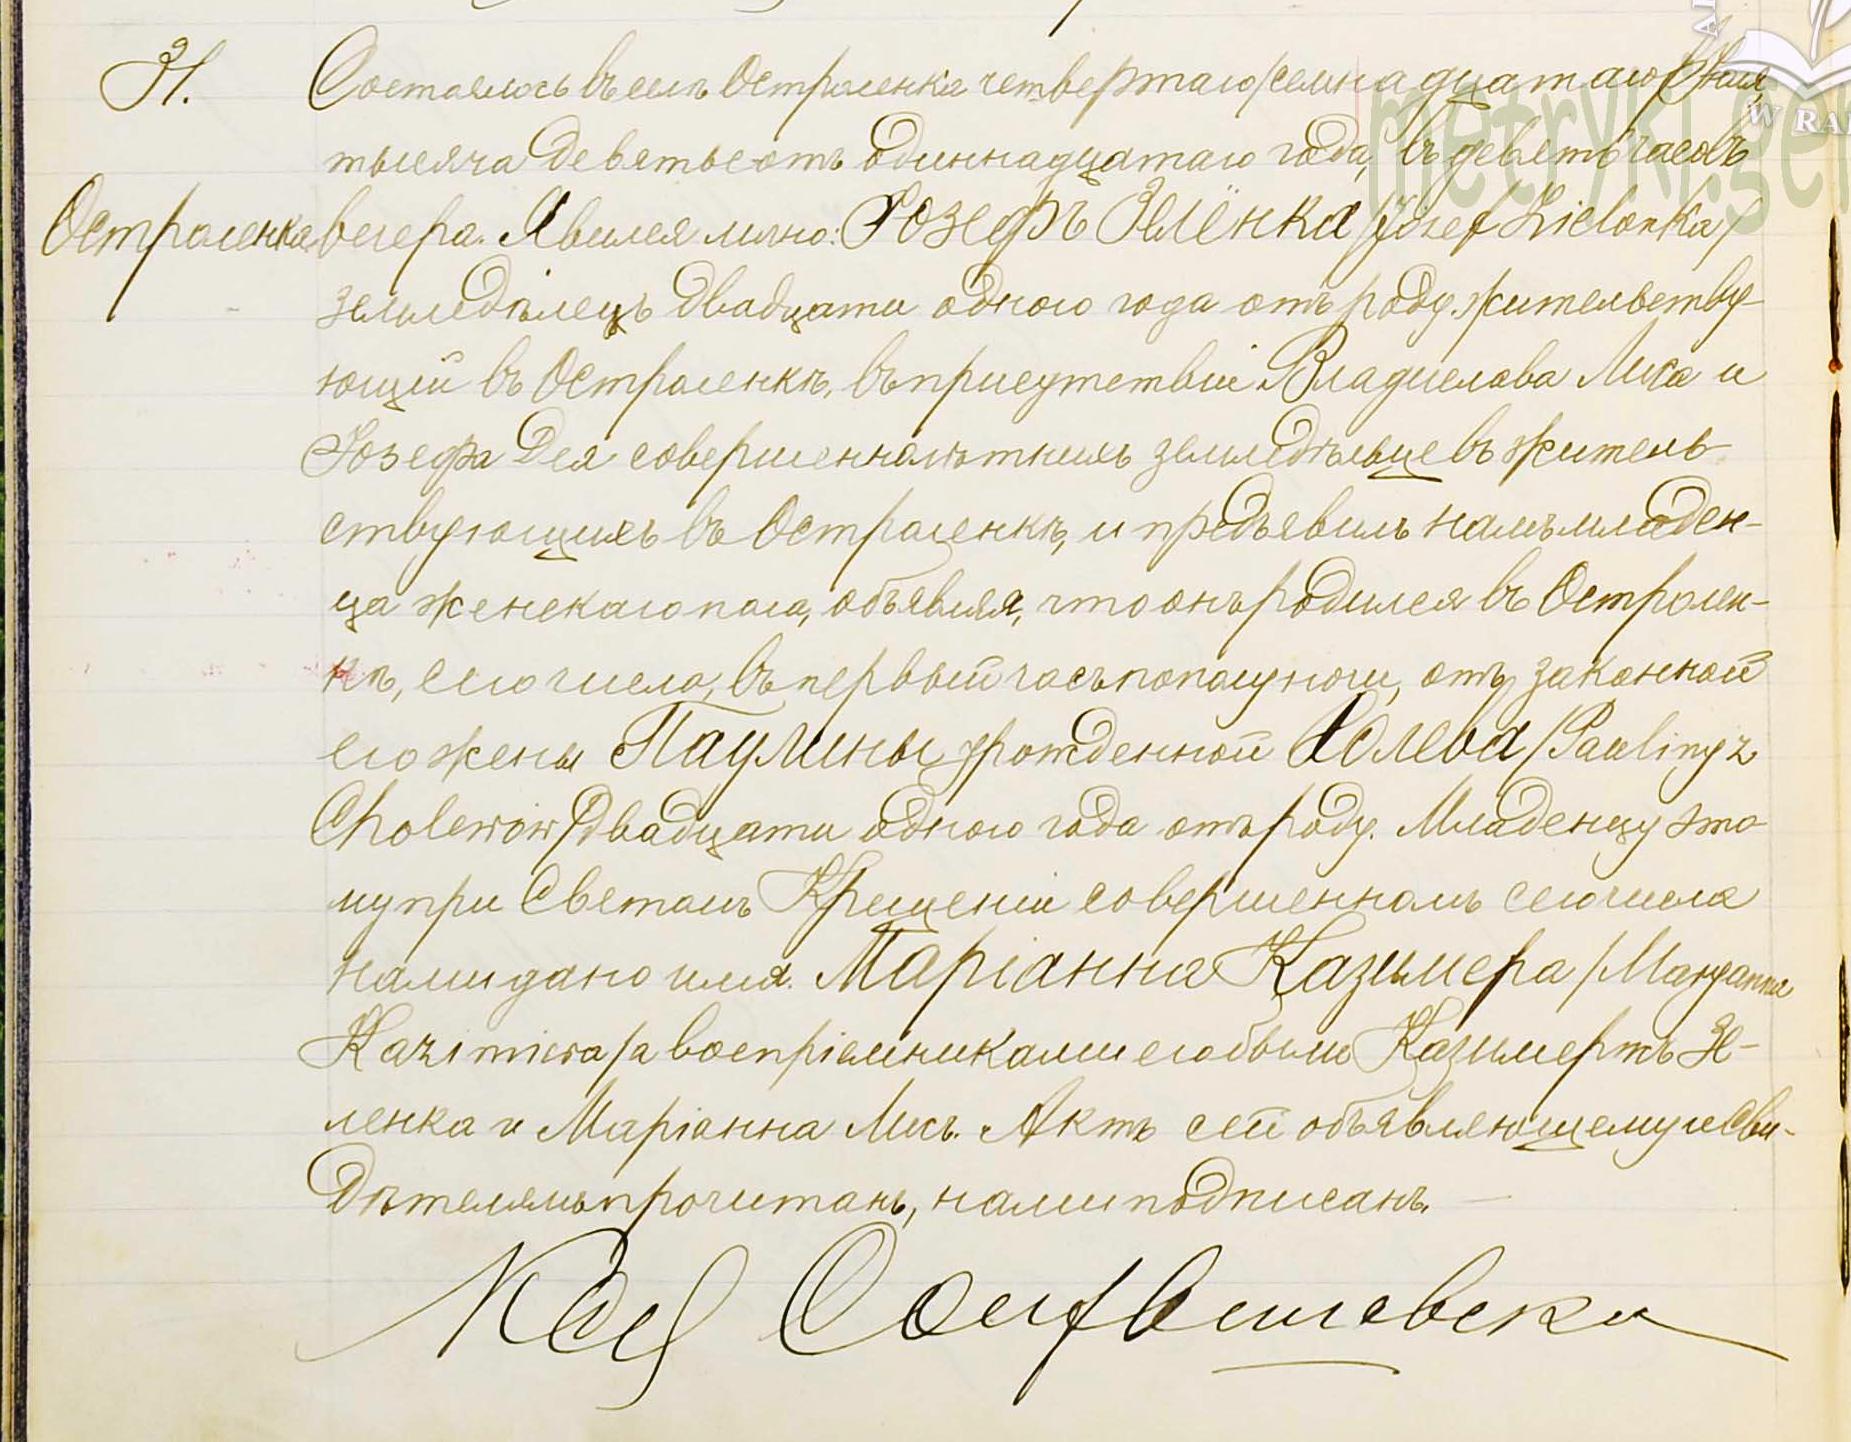 31.
Состоялось въ селѣ Остроленка четвертаго/семнадцатаго/Іюня,
тысяча девятьсотъ одиннадцатаго года, въ девять часовъ
Остроленка
вечера. Явился лично: Юзефъ Зелёнка /Józef Zielonka/
земледѣлецъ двадцати одного года отъ роду, жительству-
ющій въ Остроленкѣ, въ присутствіи Владислава Лиса и
Юзефа Дея совершеннолѣтнихъ земледѣльцевъ житель-
ствующихъ въ Остроленкѣ, и предъявилъ намъ младен-
ца женскаго пола, объявляя, что онъ родился въ Остролен-
кѣ, сего числа, въ первый часъ пополуночи, отъ законной
его жены Паулины урожденной Холева /Pauliny z
Cholewów/ двадцати одного года отъ роду. Младенцу это-
му при Светомъ Крещеніи совершенномъ сего числа
нами дано имя. Маріанна Казимера /Maryanna
Kazimiera/ а воспріемниками его были Казимержъ Зе-
ленка и Маріанна Лисъ. Актъ сей объявляющему и сви-
дѣтелямъ прочитанъ, нами подписанъ. —